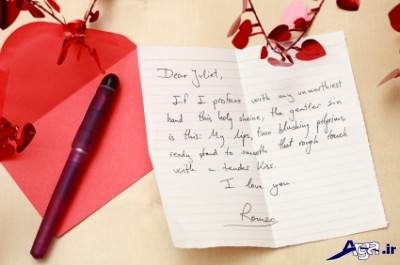 Dear Juliet,
If I profane with my unworthiest
hand this holy shrine, the gentler sin
is this: My lips, two blushing pilgrims,
ready stand to smooth that rough touch
with a tender kiss.
I love you
Romeo